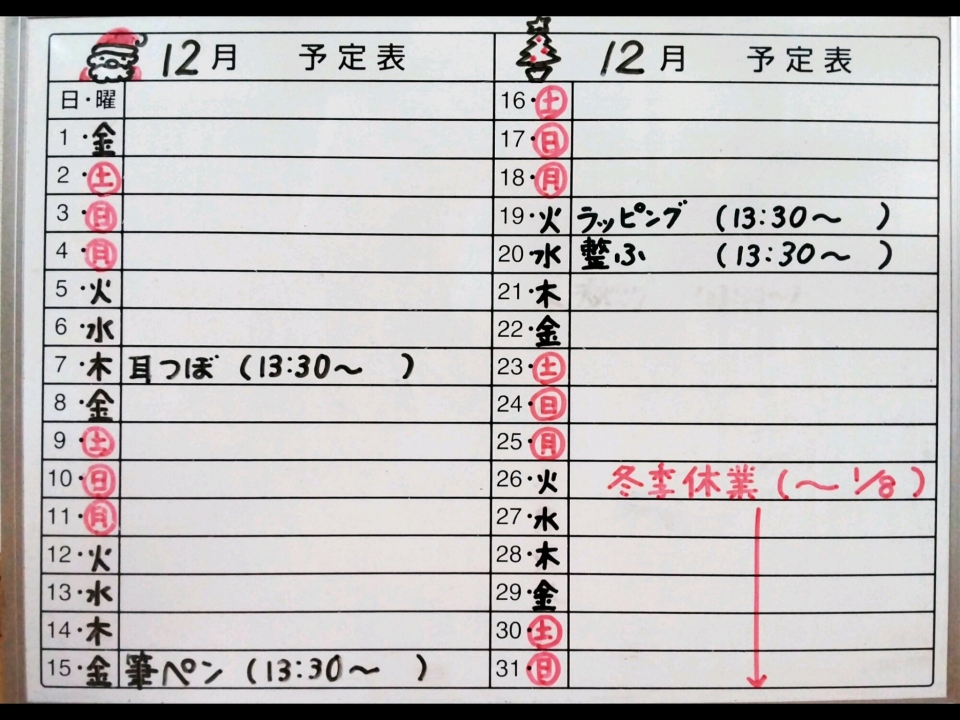 12月 予定表
日・曜
1・金
2・土
3・日
4・月
5・火
6・水
7・木 耳つぼ (13:30～ )
8・金
9・土
10・日
11・月
12・火
13・水
14・木
15・金 筆ペン (13:30～ )
12月 予定表
16・土
17・日
18・月
19・火 ラッピング (13:30～ )
20・水 整ふ (13:30～ )
21・木
22・金
23・土
24・日
25・月
26・火 冬季休業 (～1/8)
27・水
28・木
29・金
30・土
31・日